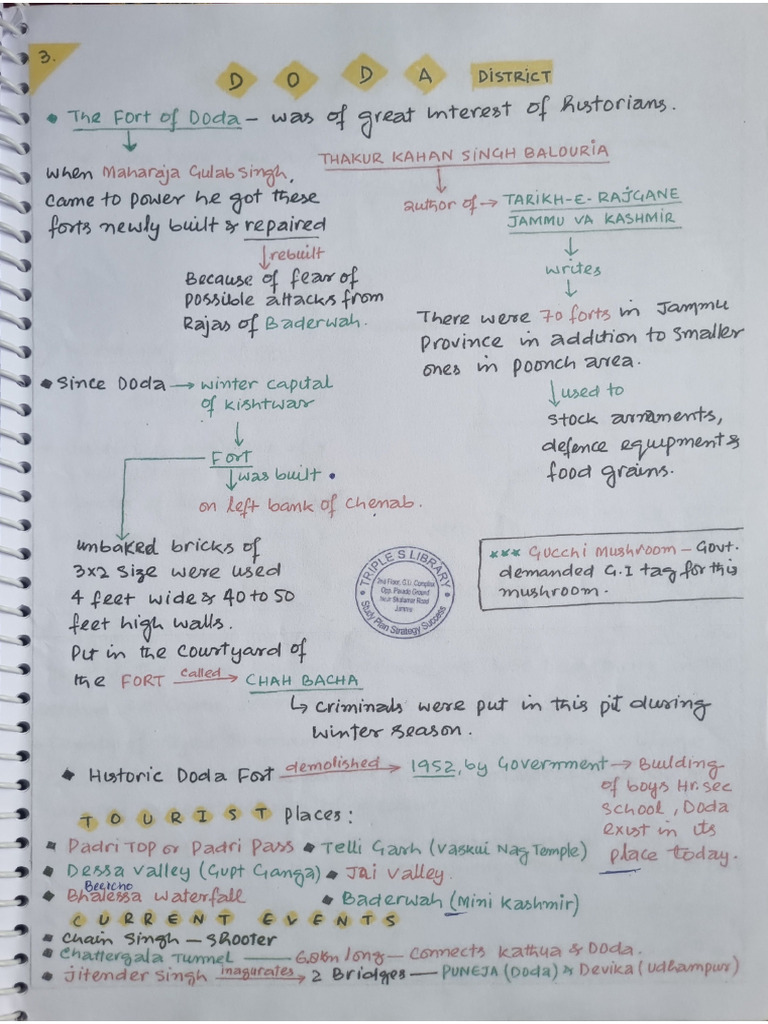 3.
DODA DISTRICT
• The Fort of Doda – was of great interest of historians.
when Maharaja Gulab Singh,
came to power he got these
forts newly built & repaired
↓ rebuilt
Because of fear of
possible attacks from
Rajas of Baderwah.
THAKUR KAHAN SINGH BALOURIA
author of → TARIKH-E-RAJGANE
JAMMU VA KASHMIR
writes
There were 70 forts in Jammu
Province in addition to smaller
ones in poonch area.
↓ used to
stock arraments,
defence equipment &
food grains.
• Since DODA → winter capital
of kishtwar
FORT
↓ was built •
on left bank of Chenab.
unbaked bricks of
3x2 size were used
4 feet wide & 40 to 50
feet high walls.
Put in the courtyard of
the FORT called → CHAH BACHA
↳ Criminals were put in this pit during
winter season.
TRIPLE S LIBRARY
2nd Floor, G.L. Complex,
Opp. Parade Ground
Near Shalamar Road
Jammu
Study Plan Strategy Success
*** GUCCHI MUSHROOM – Govt.
demanded G.I tag for this
mushroom.
• Historic Doda Fort demolished → 1952, by Government → Building
of boys Hr. sec
school, Doda
exist in its
place today.
TOURIST Places:
• Padri TOP or Padri Pass • Telli Garh (Vaskui Nag Temple)
• Dessa Valley (Gupt Ganga) • Jai Valley.
• Bhalessa waterfall • Baderwah (Mini Kashmir)
CURRENT EVENTS
• Chain Singh – Shooter
• Chattergala Tunnel — 6.8km long – Connects Kathua & Doda.
• Jitender Singh inagurates → 2 Bridges — PUNEJA (Doda) & Devika (Udhampur)